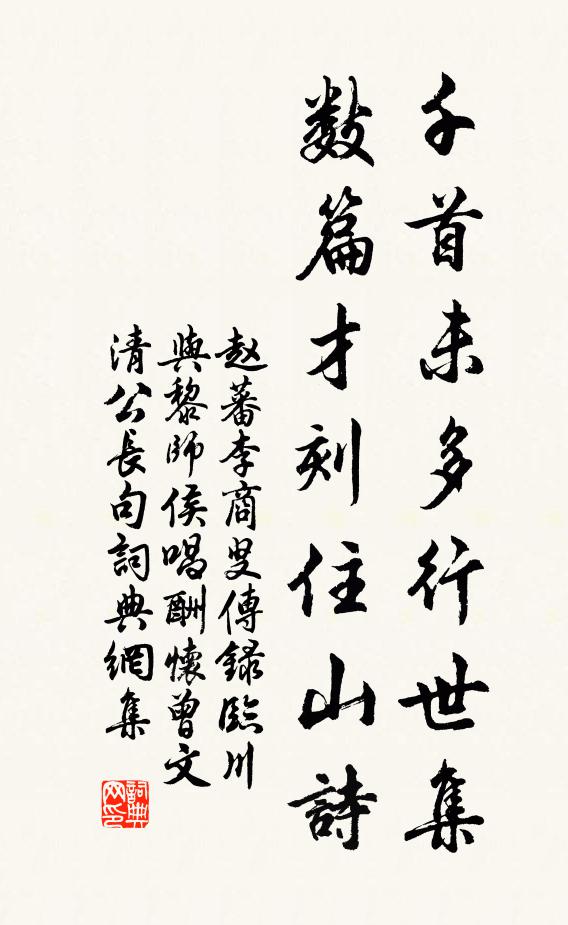 千首未多行世集
数篇才刻住山詩
赵蕃李商叟傳録臨川
與黎師侯唱酬懷曾文
清公長句詞典網集
詞典
网印